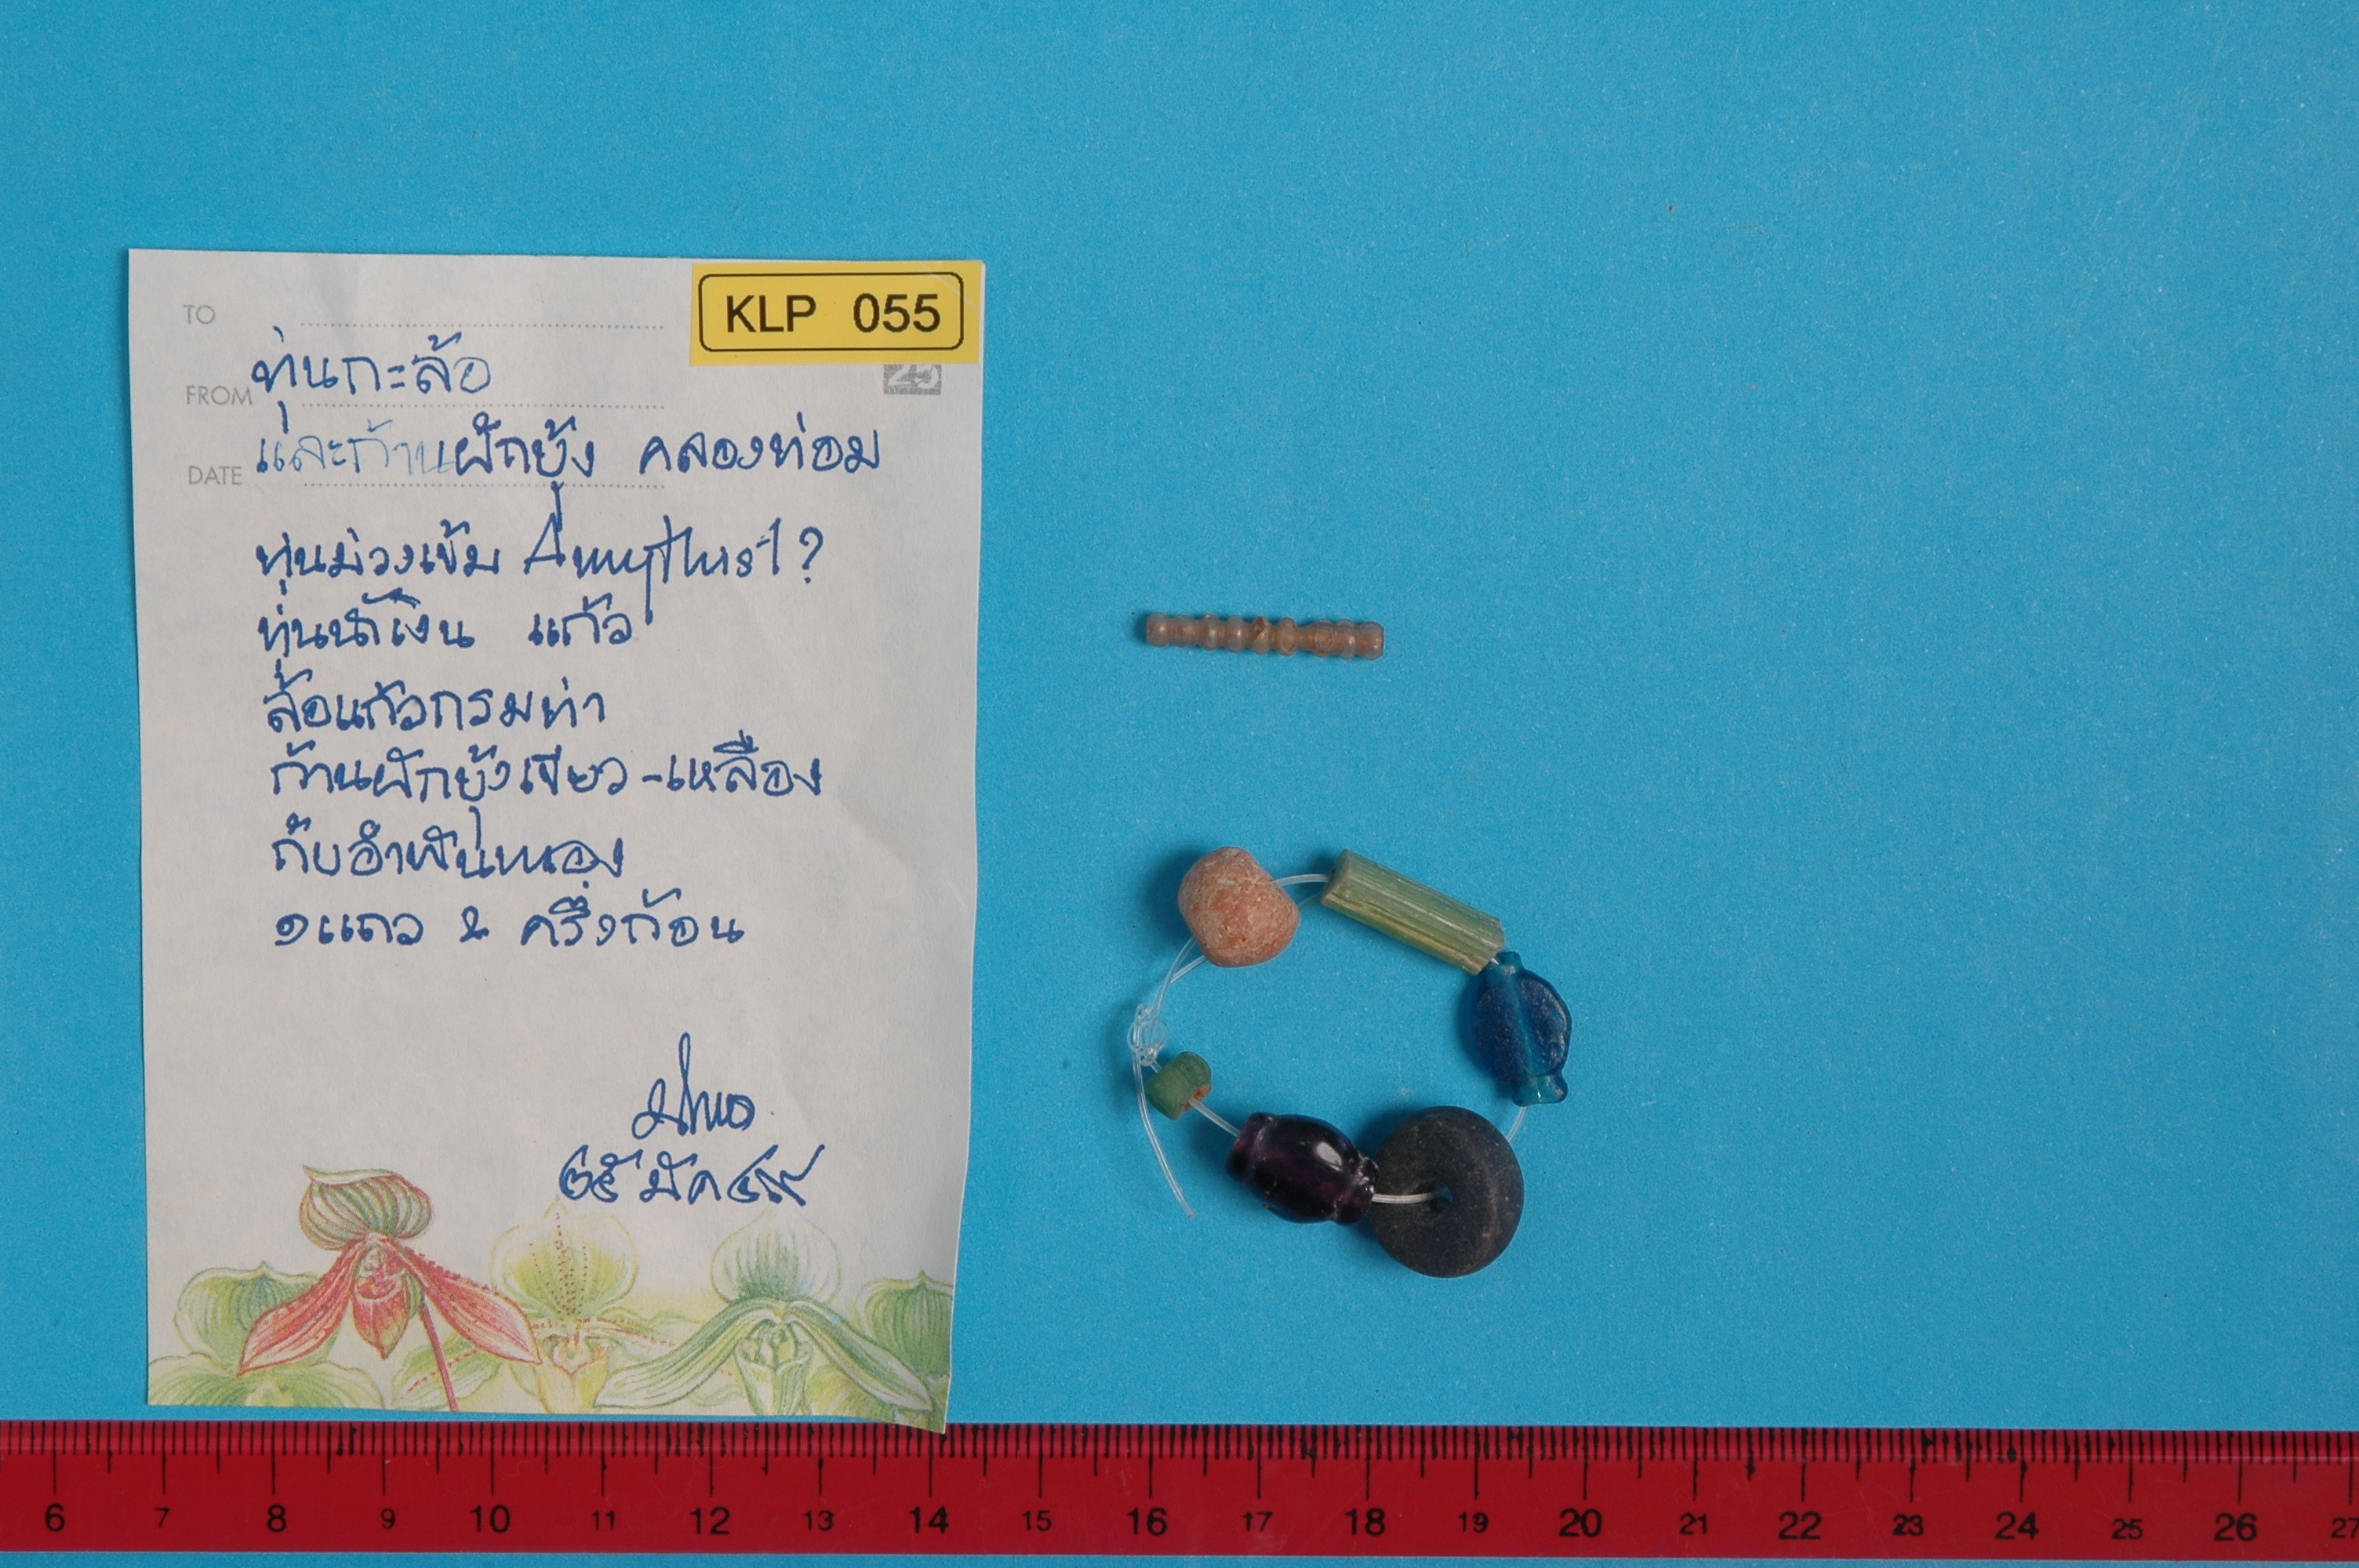 KLP 055
TO
25
FROM
DATE
ทุ่นกะล้อ
และก้านผักบุ้ง คลองท่อม
ทุ่นม่วงเข้ม Amythist?
ทุ่นน้ำเงิน แก้ว
ล้อแก้วกรมท่า
ก้านผักบุ้งเขียว-เหลือง
กับอำพันทอง
๑แถว & ครึ่งก้อน
๒๕ มีค ๔๙
6 7 8 9 10 11 12 13 14 15 16 17 18 19 20 21 22 23 24 25 26 27